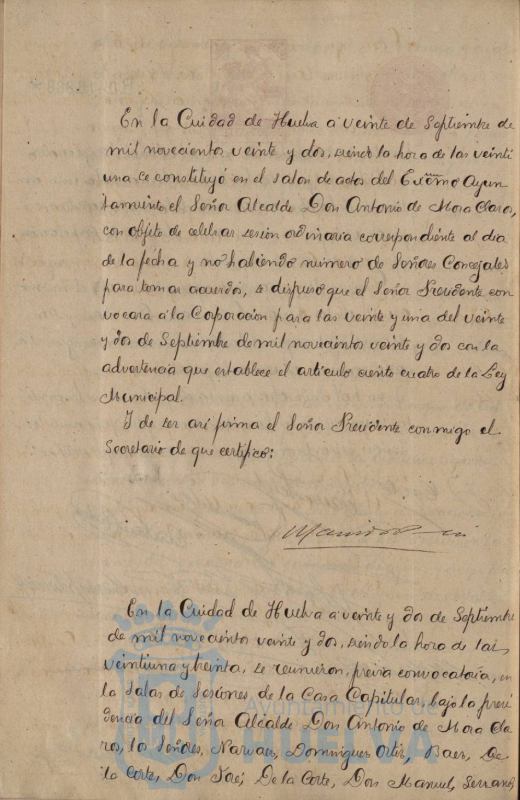 En la Cuidad de Huelva a veinte de Septiembre de
mil novecientos veinte y dos, siendo la hora de las veinti
una se constituyó en el salon de actos del Excmo Ayun
tamiento el Señor Alcalde Don Antonio de Mora Claros,
con objeto de celebrar sesion ordinaria correspondiente al dia
de la fecha y no habiendo número de Señores Concejales
para tomar acuerdo, se dispuso que el Señor Presidente con
vocara a la Coporacion para las veinte y una del veinte
y dos de Septiembre de mil novecientos veinte y dos con la
advertencia que establece el articulo ciento cuatro de la Ley
Municipal.
Y de ser asi firma el Señor Presidente conmigo el
Secretario de que certifico:
En la Cuidad de Huelva a veinte y dos de Septiembre
de mil novecientos veinte y dos, siendo la hora de las
veintiuna y treinta, se reunieron, previa convocatoria, en
la Salas de Sesiones de la Casa Capitular, bajo la presi
dencia del Seña Alcalde Don Antonio de Mora Cla
ros, los Señores, Narvaes, Domingues Ortiz, Baes, De
la Corte, Don José; De la Corte, Don Manuel, Serrano,
Ayuntamiento de
HUELVA